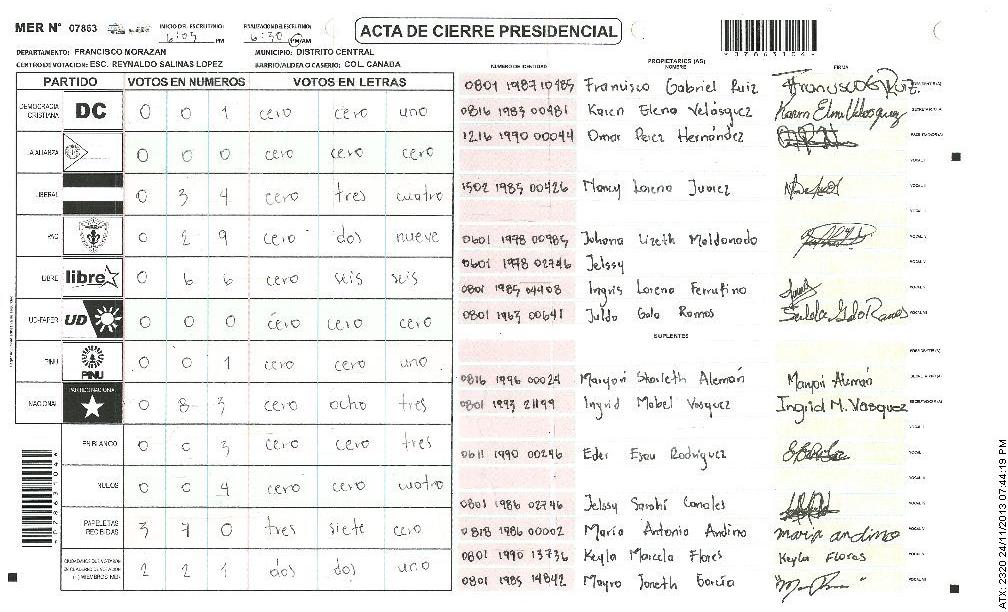 MER Nº 07863 INICIO DEL ESCRUTINIO: 6:05 PM FINALIZACION DEL ESCRUTINIO: 6:30 PM/AM ACTA DE CIERRE PRESIDENCIAL
DEPARTAMENTO: FRANCISCO MORAZAN MUNICIPIO: DISTRITO CENTRAL
CENTRO DE VOTACION: ESC. REYNALDO SALINAS LOPEZ BARRIO/ALDEA O CASERIO: COL. CANADA
PARTIDO VOTOS EN NUMEROS VOTOS EN LETRAS
DEMOCRACIA CRISTIANA DC 0 0 1 cero cero uno
LA ALIANZA 0 0 0 cero cero cero
LIBERAL 0 3 4 cero tres cuatro
PAC 0 2 9 cero dos nueve
LIBRE libre 0 6 6 cero seis seis
UD-FAPER UD 0 0 0 cero cero cero
PINU PINU 0 0 1 cero cero uno
NACIONAL PARTIDO NACIONAL 0 8 3 cero ocho tres
EN BLANCO 0 0 3 cero cero tres
NULOS 0 0 4 cero cero cuatro
PAPELETAS RECIBIDAS 3 7 0 tres siete cero
2 2 1 dos dos uno
NUMERO DE IDENTIDAD PROPIETARIOS (AS) NOMBRE FIRMA
0801 1987 10985 Francisco Gabriel Ruiz
0816 1983 00481 Karen Elena Velásquez
1216 1990 00044 Omar Perez Hernández
1502 1985 00426 Nancy Lorena Juarez
0601 1978 00985 Johana Lizeth Maldonado
0601 1978 02746 Jelssy
0801 1985 04408 Ingris Lorena Ferrufino
0801 1963 00641 Julda Galo Ramos
SUPLENTES
0816 1996 00024 Maryori Skarleth Alemán Maryori Alemán
0801 1993 21199 Ingrid Mabel Vasquez Ingrid M. Vasquez
0611 1990 00246 Eder Esau Rodríguez
0801 1986 02746 Jelssy Sarahi Canales
0818 1986 00002 Maria Antonia Andino maria andino
0801 1990 13736 Keyla Marcela Flores Keyla Flores
0801 1985 14842 Mayra Janeth García
ATX: 2320 24/11/2013 07:44:19 PM